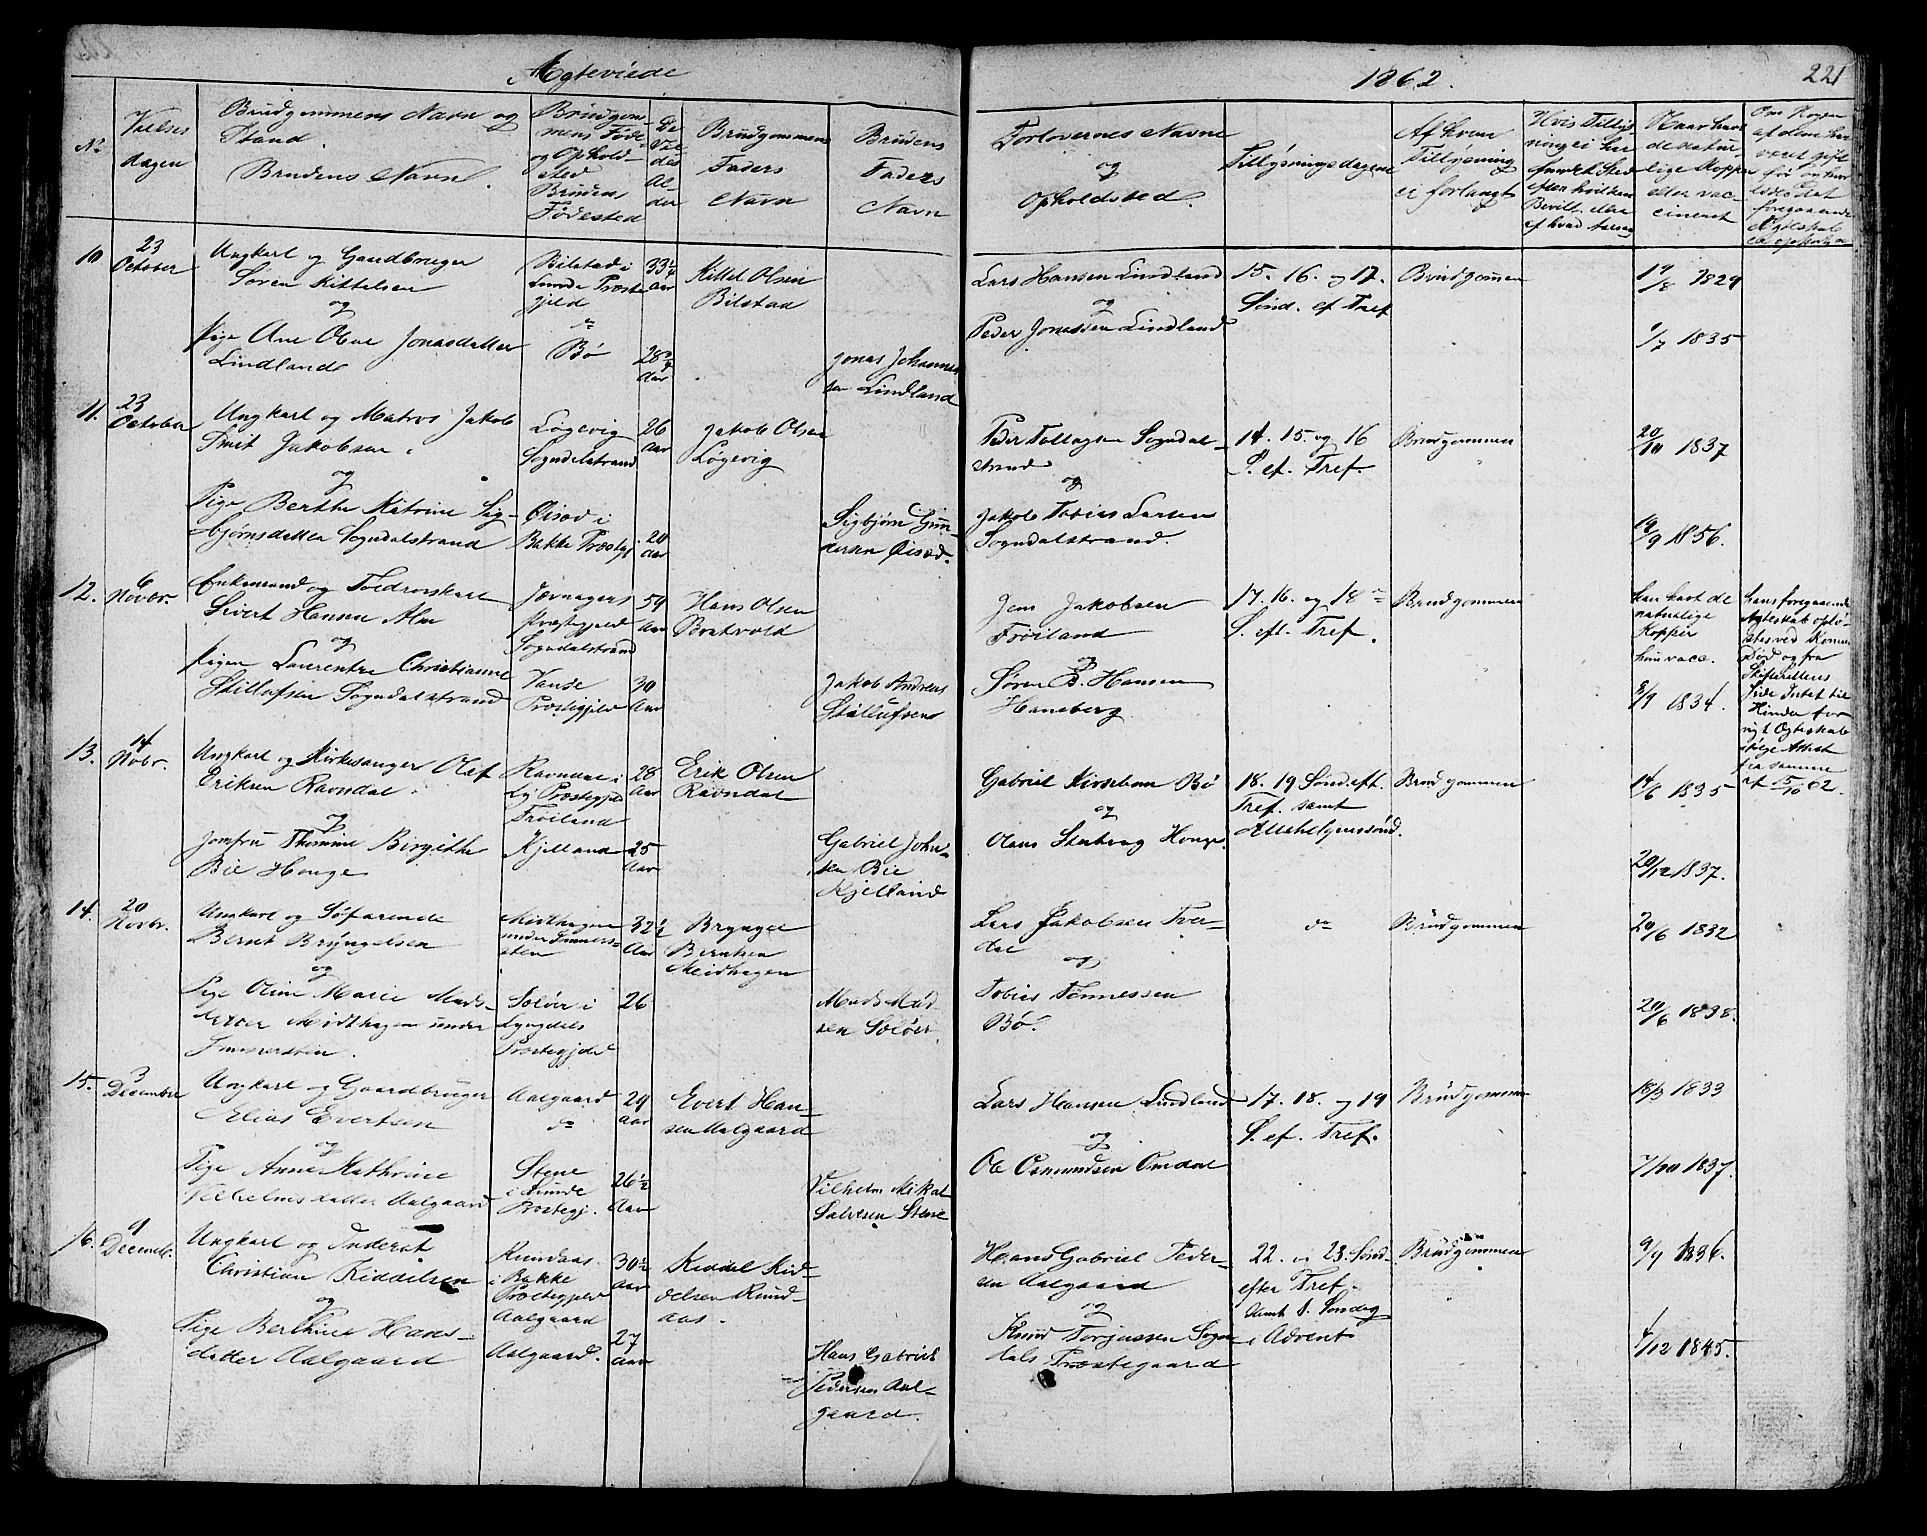 Ægteviede
1862.
221
No
Vielses dagen
Brudgommens Navn og Stand.
Brudens Navn.
Brudgommens Føde- og Opholdsted
Brudens Fødested
De Viedes Alder
Brudgommens Faders Navn
Brudens Faders Navn
Forlovernes Navne og Opholdsted.
Tillysningsdagene
Af hvem Tillysning ei forlangt
Naar havt de naturlige Kopper eller vaccineret
10
23 October
Ungkarl og Gaardbruger
Søren Kittelsen
og
Pige Ane Oline Jonasdatter
Lindland
Bilstad i
Lunde Præste
gjeld
Bø
33 1/4 Aar
28 3/4 Aar
Kittel Olsen
Bilstad
Jonas Johannes
sen Lindland
Lars Hansen Lindland
og
Peder Jonassen Lindland
15. 16. og 17.
Sønd. ef Tref
Brudgommen
19/8 1829
1/7 1835
11.
23 October
Ungkarl og Matros Jakob
Smit Jakobsen
og
Pige Berthe Katrine Sig-
bjørnsdatter Sogndalstrand
Løgevig
Sogndalstrand
Øisæd i
Bakke Præstegj.
26 Aar
20 Aar
Jakob Olsen
Løgevig
Sigbjørn Gun
dersen Øisæd.
Peder Tollagsen Sogndal-
strand
og
Jakob Tobias Larsen
Sogndalstrand.
14. 15. og 16
S. ef. Tref.
Brudgommen
20/10 1837
19/9 1856.
12.
6 Novbr.
Enkemand og Toldroerskarl
Sivert Hansen Alm
og
Pigen Laurentze Christianne
Stillufsen Sogndalstrand
Jævnagers
Præstegjeld
Sogndalstrand
Vanse
Præstegjeld
59 Aar
30 Aar
Hans Olsen
Jakob Andreas
Stillufsen
Jens Jakobsen
Frøiland
og
Søren B. Hansen
Haneberg
17. 16. og 18
S. eft. Tref.
Brudgommen
han havt de
naturlige
Kopper
hun vacc.
8/9 1834.
hans foregaaende
Ægteskab opløstes ved Konens
Død og fra
Skifterettens
Side Intet til
Hinder for
nyt Ægteskab
ifølge Attest
fra samme
af 15/10 62.
13.
14 Nobr.
Ungkarl og Kirkesanger Olaf
Eriksen Ravndal.
og
Jomfru Thomine Birgithe
Bie Houge
Ravndal i
Præstegjeld
Frøiland
Kjelland
28 Aar
25 Aar
Erik Olsen
Ravndal
Gabriel John-
sen Bie
Kjelland
Gabriel Kirsebom Bø
og
Olaus Houge.
18. 19 Sønd. eft.
Tref. samt
Allehelgenssønd.
Brudgommen
14/6 1835
29/12 1837.
14.
20 Novbr.
Ungkarl og Søfarende
Bernt Bryngelsen
og
Pige Oline Marie Mads-
datter Midthagen under
Immerstein.
Midthagen
under Immer-
sten
Soløer i
Lyngdals
Præstegjeld
32 1/2 Aar
26
Bryngel
Berntsen
Meidhagen
Mads Mad
sen Soløer
Lars Jakobsen Tve-
dal
og
Tobias Tønnessen
Bø.
do
Brudgommen
20/6 1832
20/6 1838.
15.
3 December
Ungkarl og Gaardbruger
Elias Evertsen
og
Pige Anne Kathrine
Vilhelmsdatter Aalgaard
Aalgaard
do
Stene
i Lunde
Præstegj.
29 Aar
26 1/2 Aar
Evert Han-
sen Aalgaard
Vilhelm Mikal
Salvesen Stene
Lars Hansen Lindland
og
Ole Osmundsen Omdal
17. 18. og 19
S. ef. Tref.
Brudgommen
18/3 1833
7/10 1837.
16.
9 Decemb.
Ungkarl og Inderst
Christian Kiddelsen
og
Pige Berthine Hans-
datter Aalgaard
Rundaas
i Bakke
Præstegjeld
Aalgaard
Aalgaard.
30 1/2 Aar
27 Aar
Kiddel Kid-
delsen Rund-
aas.
Hans Gabriel
Pedersen Aal-
gaard.
Hans Gabriel Peder-
sen Aalgaard
og
Knud Torjussen Sogn-
dals Præstegaard
22. og 23. Sønd
efter Tref.
samt 1. Søndag
i Advent
Brudgommen
9/9 1836.
1/12 1845.